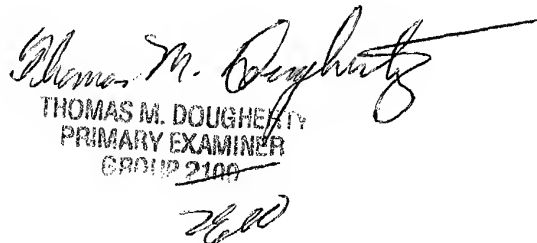 Thomas M. Dougherty
THOMAS M. DOUGHERTY
PRIMARY EXAMINER
GROUP 2100